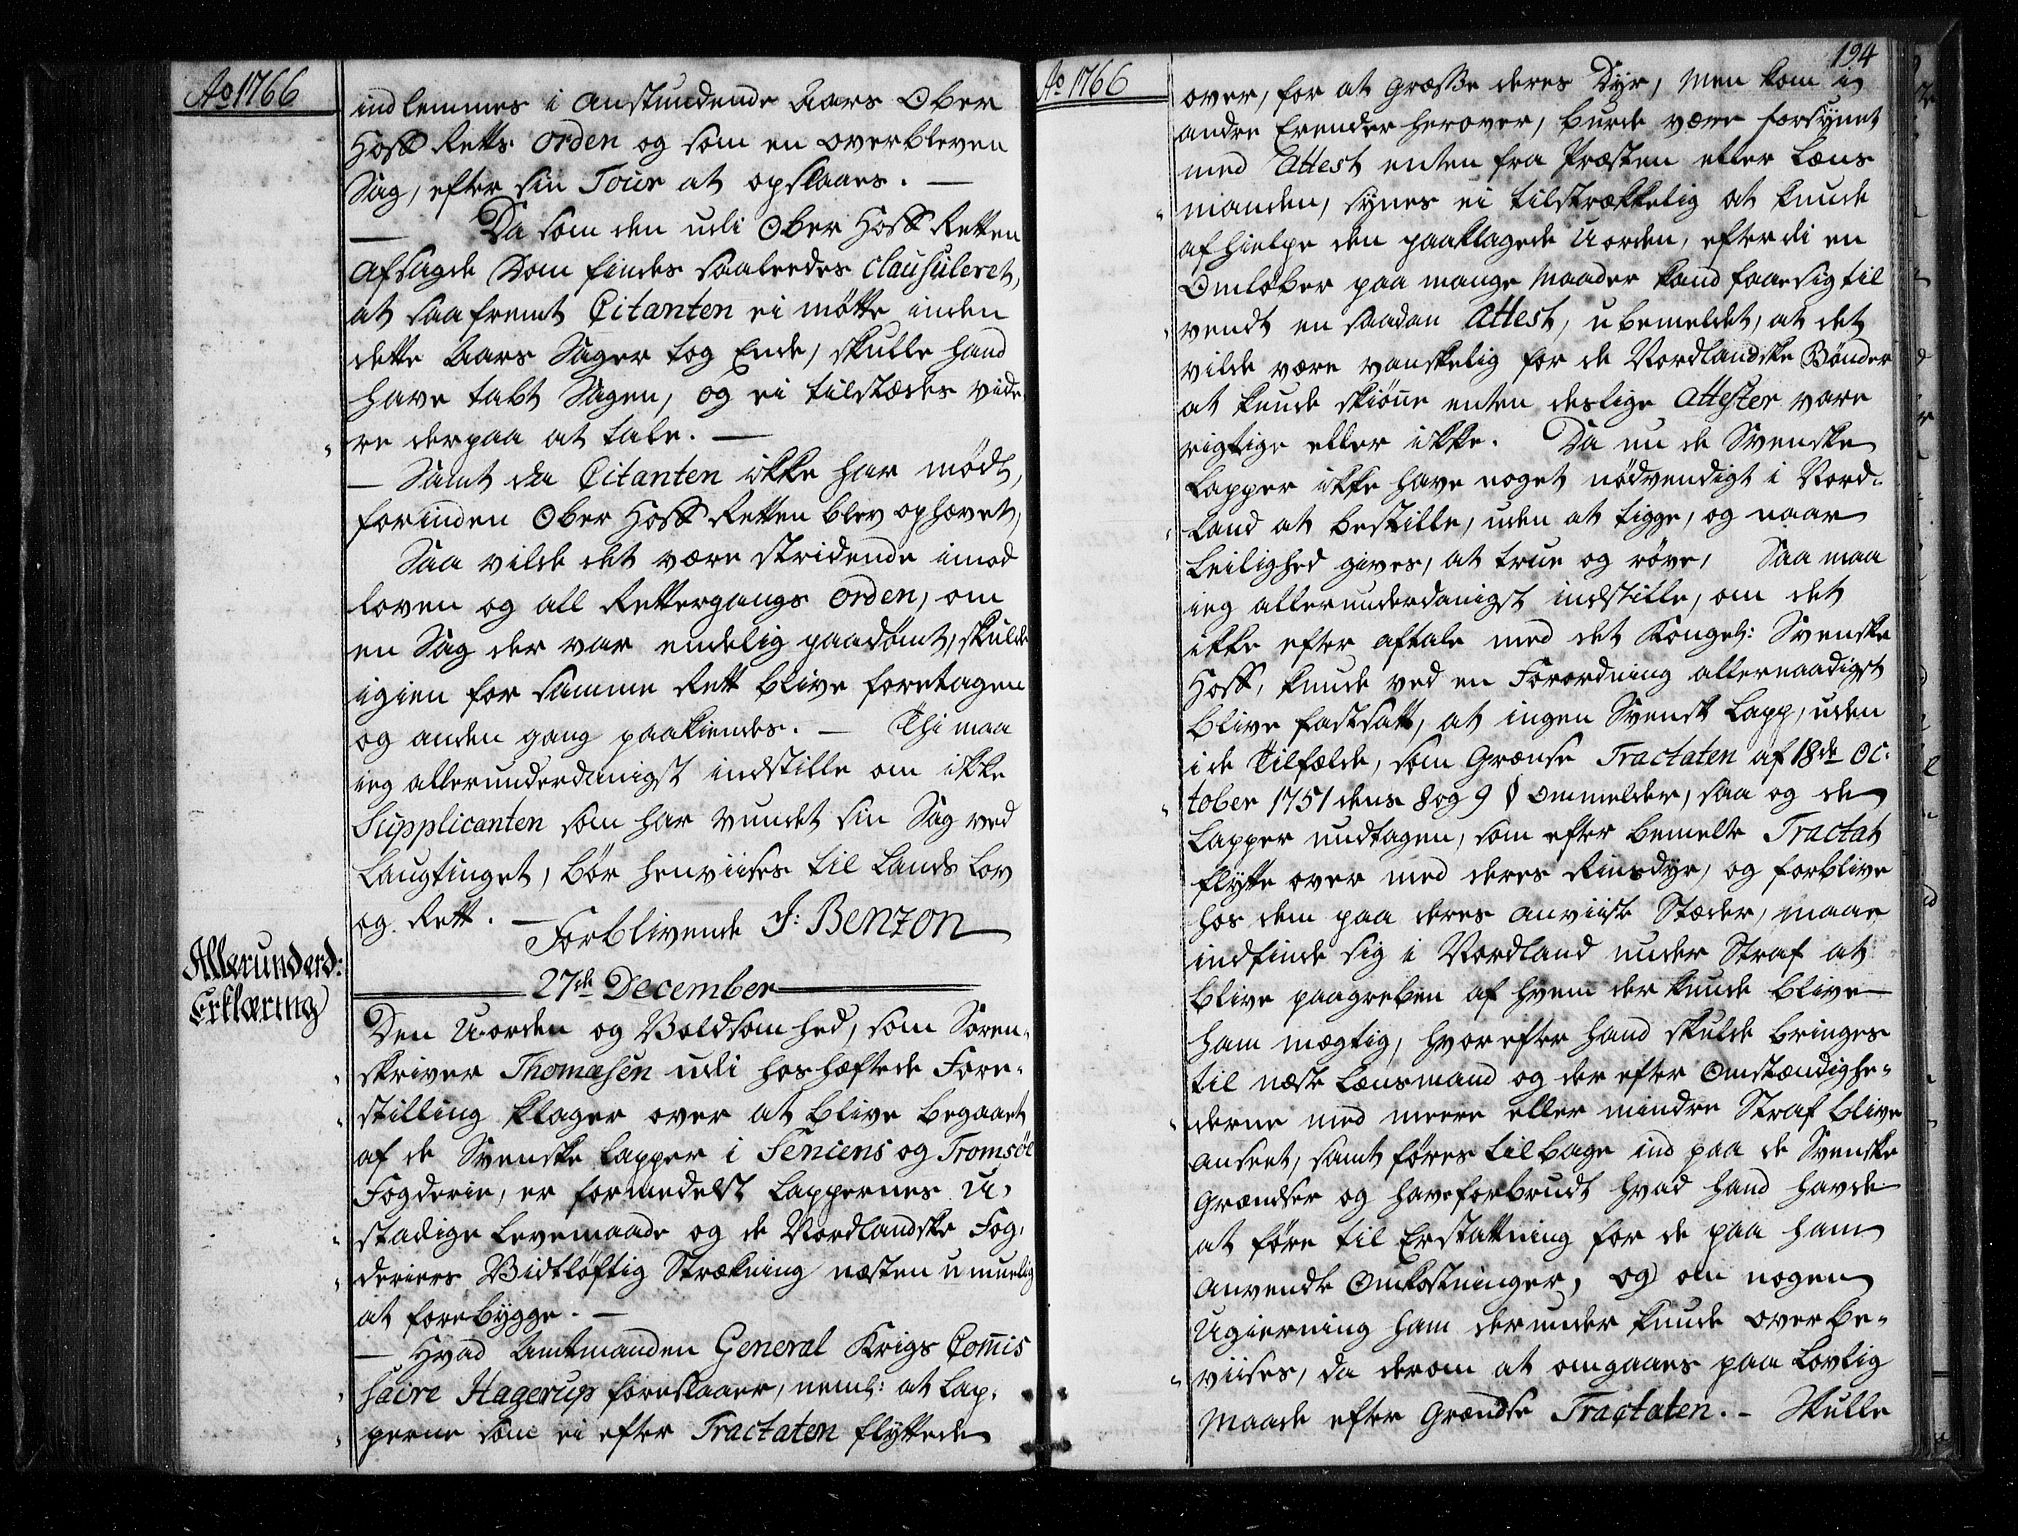 Ao 1766
indlemmes i anstundende Aars Ober
Hoff Retts Orden og som en overbleven
Sag, efter sin Tour at opslaaes. —
Da som den udi Ober Hoff Retten
afsagde Dom findes saaledes Clausuleret,
at saafremt Citanten ei mötte inden
dette Aars Sager tog Ende, skulle hand
have tabt Sagen, og ei tilstædes vide,
re derpaa at tale. —
— Samt da Citanten ikke har mødt,
forinden Ober Hoff Retten blev ophævet,
Saa vilde det være stridende imod
Loven og all Rettergangs Orden, om
en Sag der var endelig paadømt, skulde
igien for samme Rett blive foretagen
og anden gang paakiendes. — Thi maa
ieg allerunderdanigst indstille om ikke
Supplicanten som har vundet sin Sag ved
Laugtinget, bör henviises til Lands Lov
og Rett. —
Forblivende J: Benzon
Allerunderd:
Erklæring
27de December
Den Uorden og Voldsomhed, som Soren,
skriver Thomæsen udi hoshæftede Fore,
stilling klager over at blive begaaet
af de Svenske Lapper i Seniens og Tromsöe
Fogderie, er formedelst Lappernes U,
stadige Levemaade og de Nordlandske Fog,
deriers Vidtløftig Strækning næsten umuelig
at forebygge. —
— Hvad Amtmanden General Krigs Com̄is
saire Hagerup foreslaaer, neml: at Lap,
perne som ei efter Tractaten flyttede
Ao 1766
194
over, for at græsse deres Dyr, men kom i
andre Erender herover, burde være forsynet
med Attest enten fra Præsten eller Læns
manden, synes ei tilstrækkelig at kunde
afhielpe den paaklagede Uorden, efterdi en
Omløber paa mange Maader kand faae sig til
vendt en saadan Attest, ubemeldet, at det
vilde være vanskelig for de Nordlandske Bønder
at kunde skiøn̄e enten deslige Attester vare
rigtige eller ikke. Da nu de Svenske
Lapper ikke have noget nödvendigt i Nord-
land at bestille, uden at tigge, og naar
Leilighed gives, at true og röve, Saa maa
ieg allerunderdanigst indstille, om det
ikke efter aftale med det Kongel: Svenske
Hoff, kunde ved en Forordning allernaadigst
blive fastsatt, at ingen Svensk Lapp, uden
i de Tilfælde, som Grænse Tractaten af 18de Oc-
tober 1751 dens 8 og 9 § ommelder, saa og de
Lapper undtagen, som efter bemelte Tractat
flytte over med deres Rinsdyr, og forblive
hos dem paa deres anviiste Stæder, maae
indfinde sig i Nordland under Straf at
blive paagreben af hvem der kunde blive
ham mægtig, hvorefter hand skulde bringes
til næste Lænsmand og der efter Omstændighe-
derne med meere eller mindre Straf blive
anseet, samt føres tilbage ind paa de Svenske
Grændser og have forbrudt hvad hand havde
at före til Erstattning for de paa ham
anvendte Omkostninger, og om nogen
Ugierning ham derunder kunde overbe-
viises, da derom at omgaaes paa Lovlig
Maade efter Grændse Tractaten. — Skulle